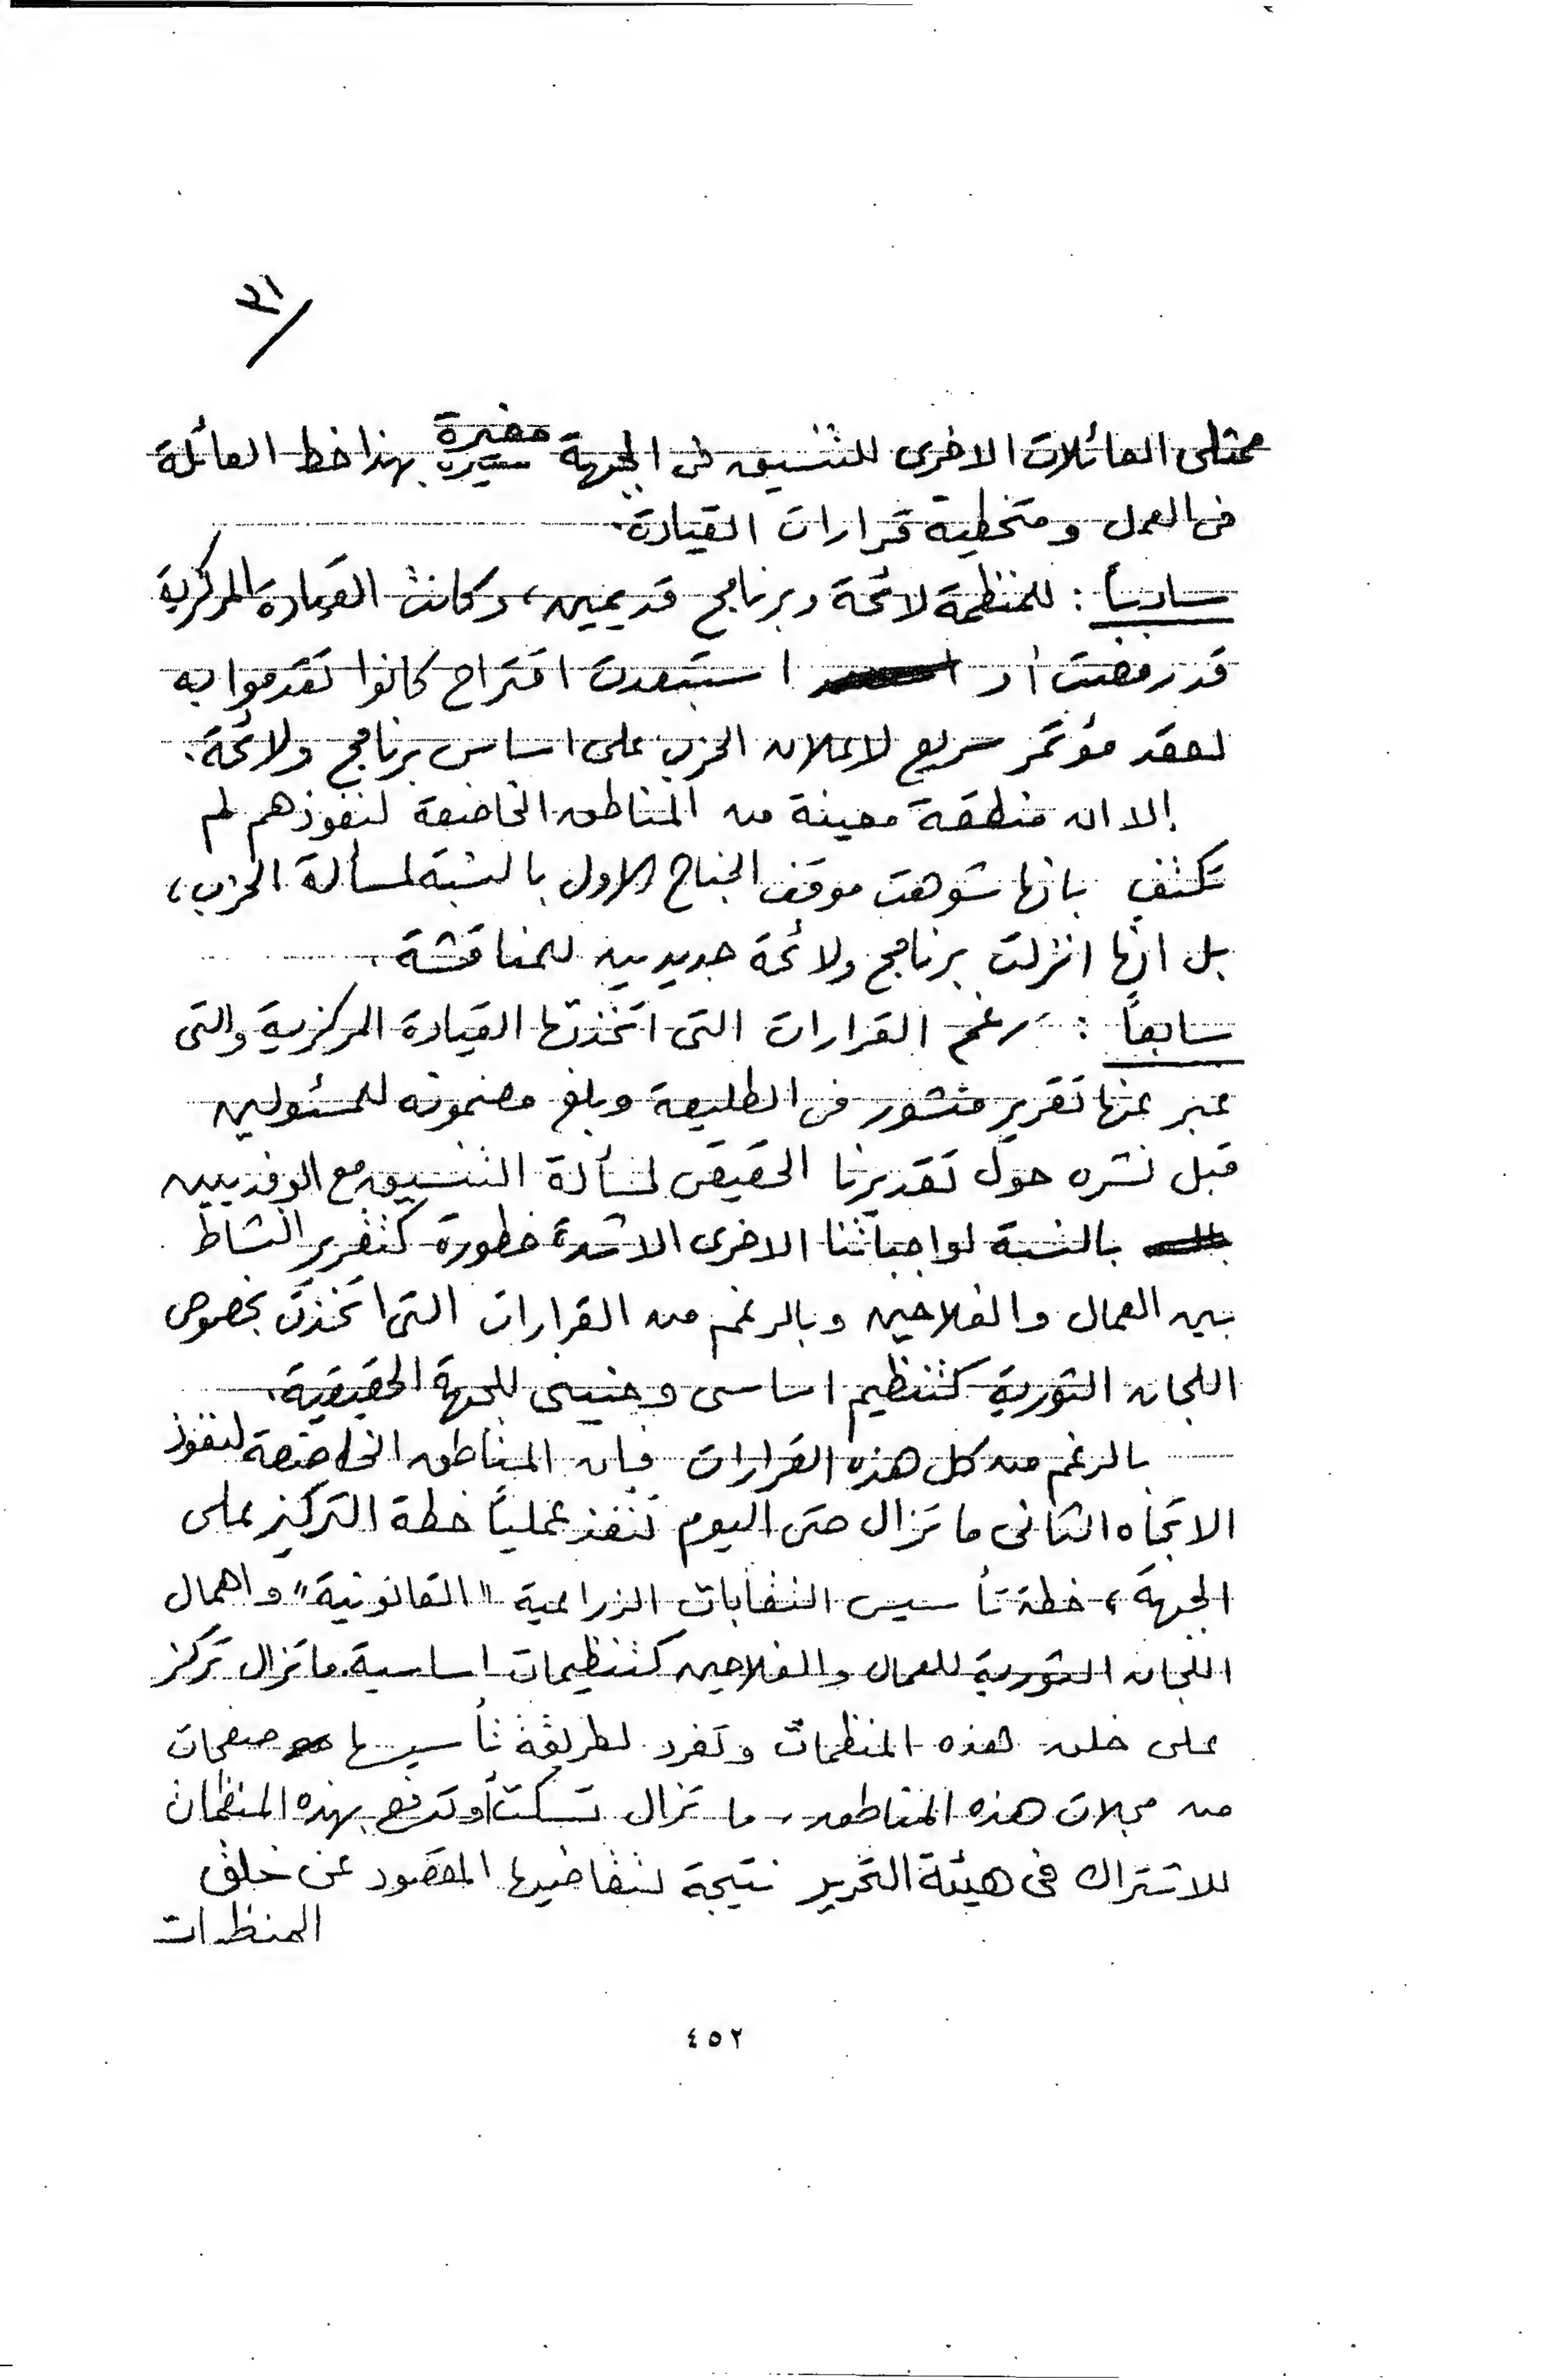 ٣١
ممثلى العائلات الاخرى للتنسيق فى الجبهة مغيرة بهذا خط العائلة
فى العمل ومتخطية قرارات القيادة.
سادساً : للمنظمة لائحة وبرنامج قديمين، وكانت القيادة المركزية
قد رفضت أو استبعدت اقتراح كانوا تقدموا به
لعقد مؤتمر سريع لاعلان الحزب على اساس برنامج ولائحة.
إلا ان منطقة معينة من المناطق الخاضعة لنفوذهم لم
تكتف بانها شوهت موقف الجناح الاول بالنسبة لمسألة الحزب،
بل انها انزلت برنامج ولائحة جديدين للمناقشة.
سابعاً : رغم القرارات التى اتخذتها القيادة المركزية والتى
عبر عنها تقرير منشور فى الطليعة وبلغ مضمونه للمسئولين
قبل نشره حول تقديرنا الحقيقى لمسألة التنسيق مع الوفديين
بالنسبة لواجباتنا الاخرى الاشد خطورة كتقرير النشاط
بين العمال والفلاحين وبالرغم من القرارات التى اتخذت بخصوص
اللجان الثورية كتنظيم اساسى وجنينى للجبهة الحقيقية.
بالرغم من كل هذه القرارات فإن المناطق الخاضعة لنفوذ
الاتجاه الثانى ما تزال حتى اليوم تنفذ عملياً خطة التركيز على
الجبهة، خطة تأسيس النقابات الزراعية "القانونية" واهمال
اللجان الثورية للعمال والفلاحين كتنظيمات اساسية. ما تزال تركز
على خلق هذه المنظمات وتفرد لطريقة تأسيسها صفحات
من مجلات هذه المناطق، ما تزال تسكت أو تدفع بهذه المنظمات
للاشتراك فى هيئة التحرير نتيجة لتغاضيها المقصود عن خلق
المنظمات
٤٥٢